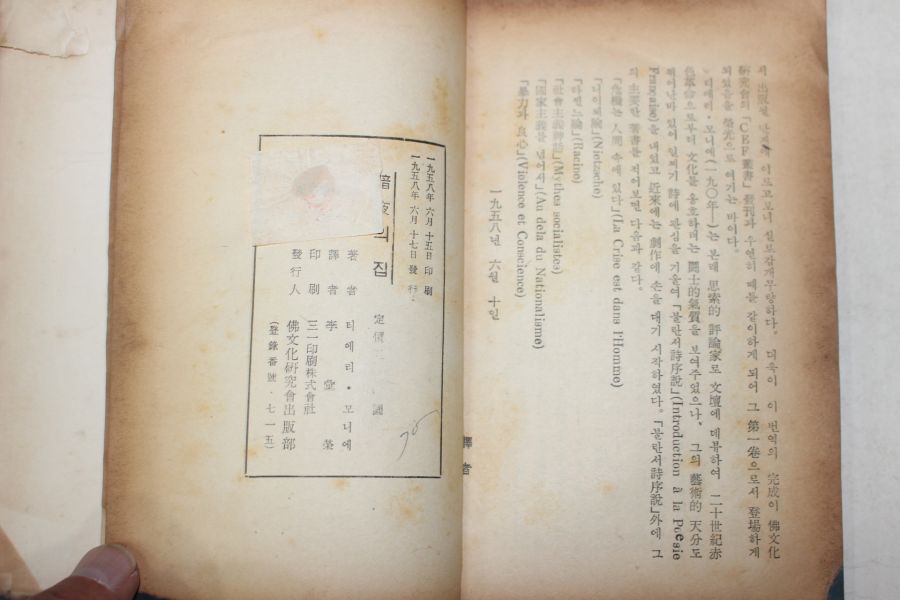 서 出版될
이 번역의 完成이 佛文化
硏究會의 「CEF叢書」發刊과 우연히 때를 같이하게 되어 그 第一卷으로서 登場하게
되었음을 榮光으로 여기는 바이다.
티에리・모니에(一九〇年—)는 본래 思索的 評論家로 文壇에 데뷰하여 二十世紀赤
色革命으로부터 文化를 옹호하려는 鬪士的氣質을 보여주었으나、 그의 藝術的 天分도
뛰어난바 있어 일찌기 詩에 관심을 기울여「불란서詩序說」(Introduction à la Poésie
Française)을 내었고 近來에는 劇作에 손을 대기 시작하였다。「불란서詩序說」外에 그
의 主要한 著書를 적어보면 다음과 같다.
「危機는 人間 속에 있다」(La Crise est dans l'Homme)
「니이체論」(Nietzsche)
「라씬느論」(Racine)
「社會主義神話」(Mythes socialistes)
「國家主義를 넘어서」(Au dela du Nationalisme)
「暴力과 良心」(Violence et Conscience)
一九五八년 六월 十일
譯者
一九五八年 六月 十五日 印刷
一九五八年 六月 十七日 發行
暗夜의 집
定價
著者 티에리・모니에
譯者 李 榮
印刷 三一印刷株式會社
發行人 佛文化硏究會出版部
(登錄番號・七一五)